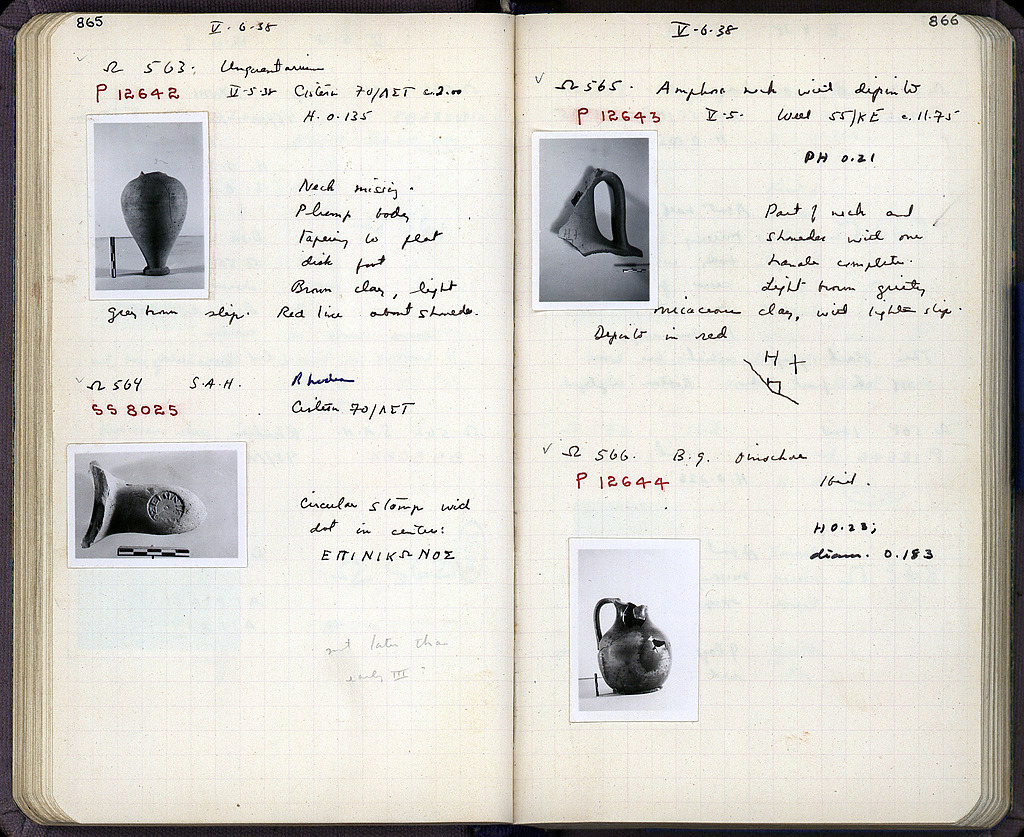 865
V-6-38
Ω 563: Unguentarium
P 12642 V-5-38 Cistern 70/ΛΣΤ c.2.00
H. 0.135
Neck missing.
Plump body
tapering to flat
disk foot
Brown clay, light
grey brown slip. Red line about shoulder.
Ω 564 S.A.H. Rhodian
SS 8025 Cistern 70/ΛΣΤ
Circular stamp with
dot in center:
ΕΠΙΝΙΚΩΝΟΣ
not later than
early III?
866
V-6-38
Ω 565. Amphora neck with dipinto
P 12643 V-5- Well 55/ΚΕ c.11.75
PH 0.21
Part of neck and
shoulder with one
handle complete.
Light brown gritty
micaceous clay, with lighter slip.
Dipinto in red
H +
Ω 566. B.g. oinochoe
P 12644 Ibid.
H 0.23;
diam. 0.183